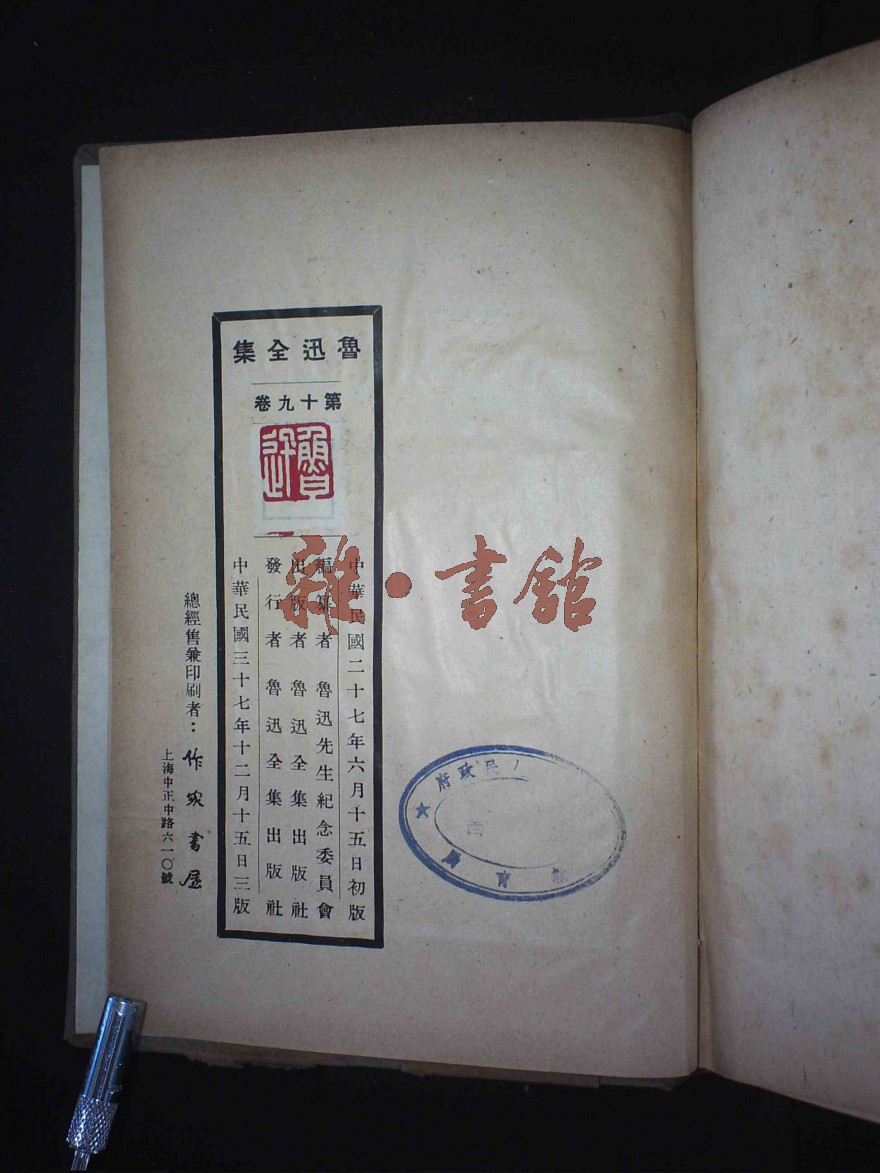 魯迅全集
第十九卷
魯迅
中華民國二十七年六月十五日初版
編纂者 魯迅先生紀念委員會
出版者 魯迅全集出版社
發行者 魯迅全集出版社
中華民國三十七年十二月十五日三版
總經售兼印刷者：作家書屋
上海中正中路六一〇號
雜·書館
人民政府
育局